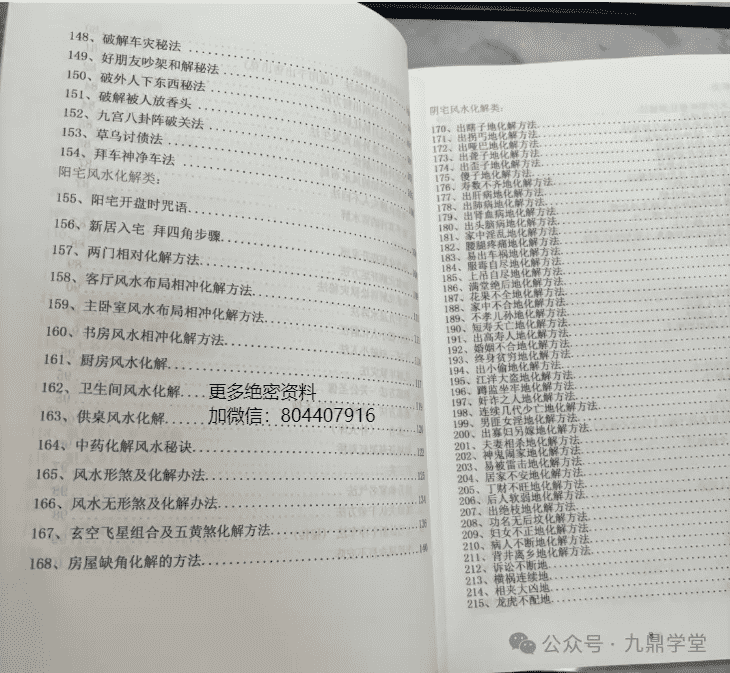 148、破解车灾秘法
149、好朋友吵架和解秘法
150、破外人下东西秘法
151、破解被人放香头
152、九宫八卦阵破关法
153、草乌讨债法
154、拜车神净车法
阳宅风水化解类：
155、阳宅开盘时咒语
156、新居入宅 拜四角步骤
157、两门相对化解方法
158、客厅风水布局相冲化解方法
159、主卧室风水布局相冲化解方法
160、书房风水相冲化解方法
161、厨房风水化解
162、卫生间风水化解
163、供桌风水化解
164、中药化解风水秘诀
165、风水形煞及化解办法
166、风水无形煞及化解办法
167、玄空飞星组合及五黄煞化解方法
168、房屋缺角化解的方法
更多绝密资料
加微信：804407916
阴宅风水化解类：
170、出瞎子地化解方法
171、出拐丐地化解方法
172、出哑巴地化解方法
173、出聋子地化解方法
174、出歪子地化解方法
175、傻子地化解方法
176、寿数不齐地化解方法
177、出肝病地化解方法
178、出肺病地化解方法
179、出肾血病地化解方法
180、出头脑病地化解方法
181、家中淫乱地化解方法
182、腰腿疼痛地化解方法
183、易出车祸地化解方法
184、服毒自尽地化解方法
185、上吊自尽地化解方法
186、满堂绝后地化解方法
187、花果不全地化解方法
188、家中不合地化解方法
189、不孝儿孙地化解方法
190、短寿夭亡地化解方法
191、出高寿人地化解方法
192、婚姻不合地化解方法
193、终身贫穷地化解方法
194、出小偷地化解方法
195、江洋大盗地化解方法
196、蹲监坐牢地化解方法
197、奸诈之人地化解方法
198、连续几代少亡地化解方法
199、男匪女淫地化解方法
200、出寡妇另嫁地化解方法
201、夫妻相杀地化解方法
202、神鬼闹家地化解方法
203、易被雷击地化解方法
204、居家不安地化解方法
205、丁财不旺地化解方法
206、后人软弱地化解方法
207、出绝枝地化解方法
208、功名无后坟化解方法
209、妇女不正地化解方法
210、病人不断地化解方法
211、背井离乡地化解方法
212、诉讼不断地
213、横祸连续地
214、相夹大凶地
215、龙虎不配地
公众号·九鼎学堂